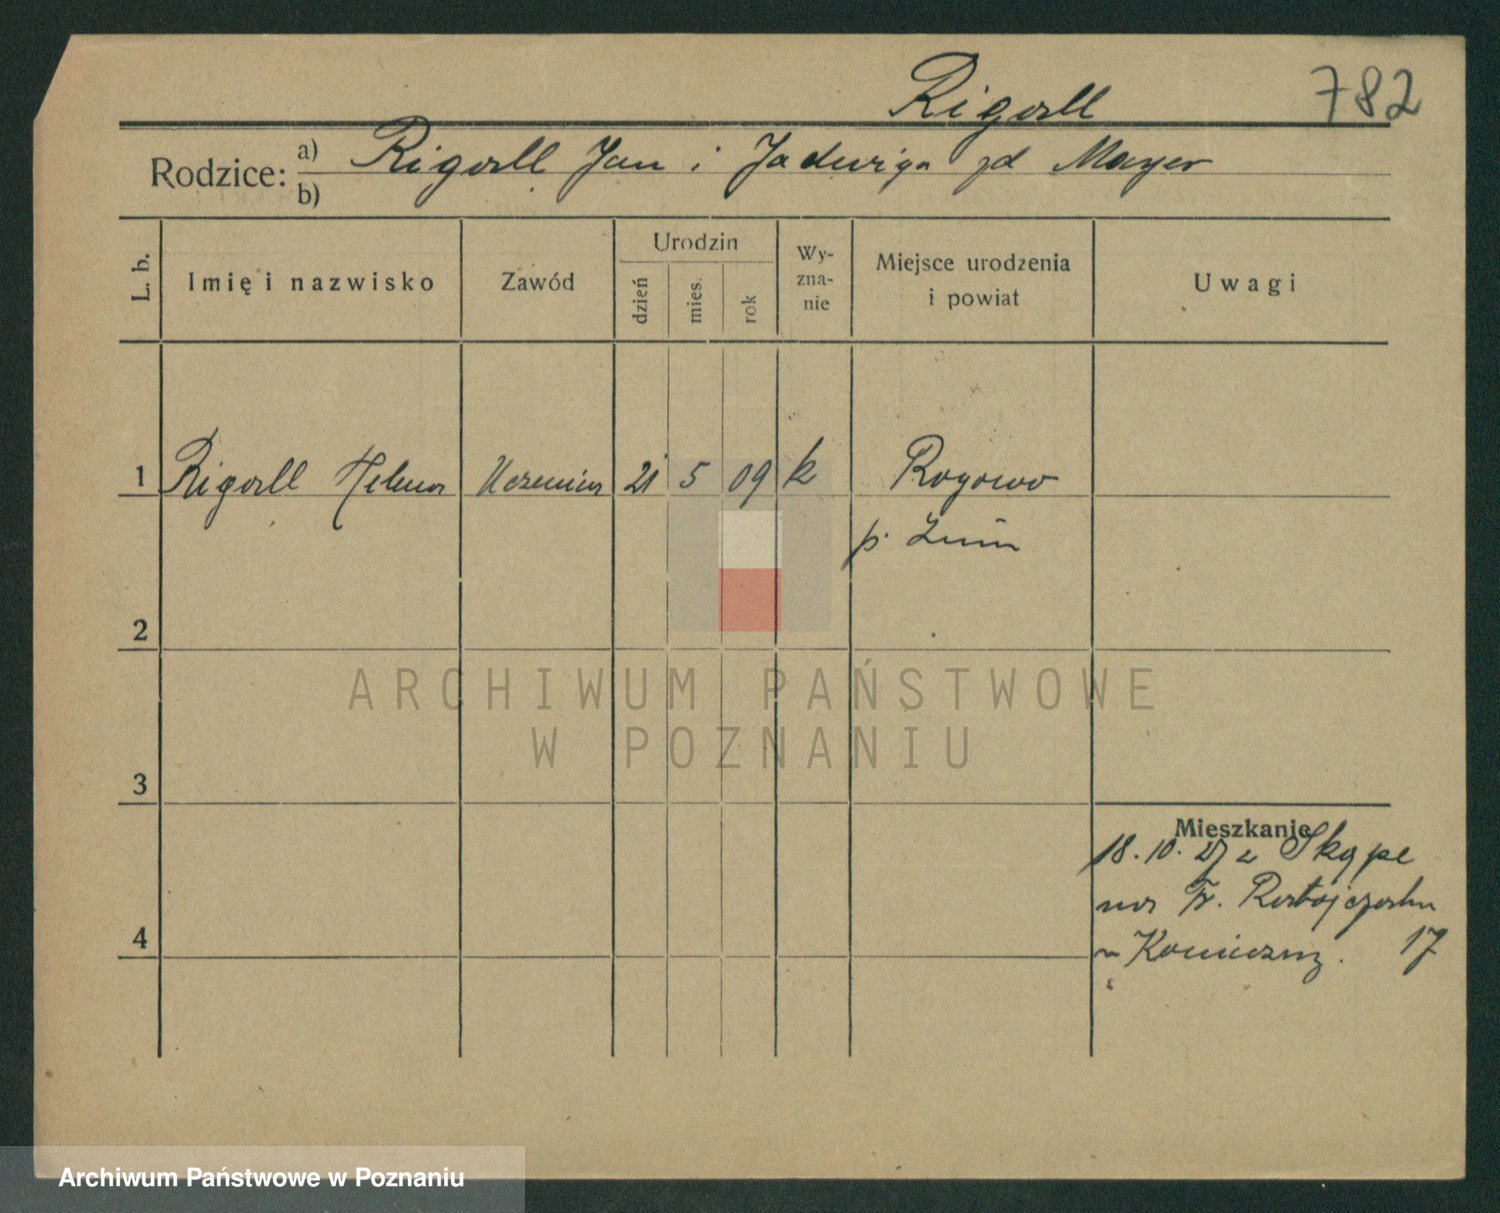 Rigall
782
Rodzice: a) Rigall Jan i Jadwiga zd Mayer
b)
L. b.
Imię i nazwisko
Zawód
Urodzin
dzień
mies.
rok
Wy-
zna-
nie
Miejsce urodzenia
i powiat
Uwagi
1 Rigall Helena Uczenica 21 5 09 k Rogowo
p. Żnin
2
3
4
Mieszkanie
18. 10. 27 z Skąpe
na Fr. Ratajczaka
Konieczny. 17
ARCHIWUM PAŃSTWOWE
W POZNANIU
Archiwum Państwowe w Poznaniu